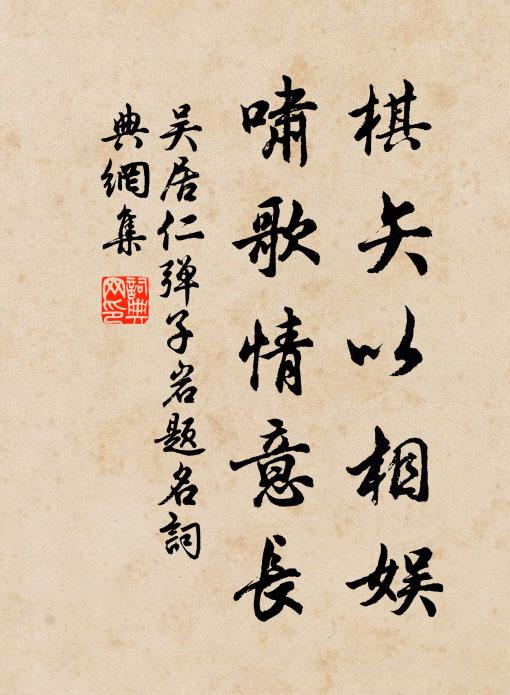 棋矢以相娱
啸歌情意長
吴居仁弹子岩題名詞
典網集
詞典网印